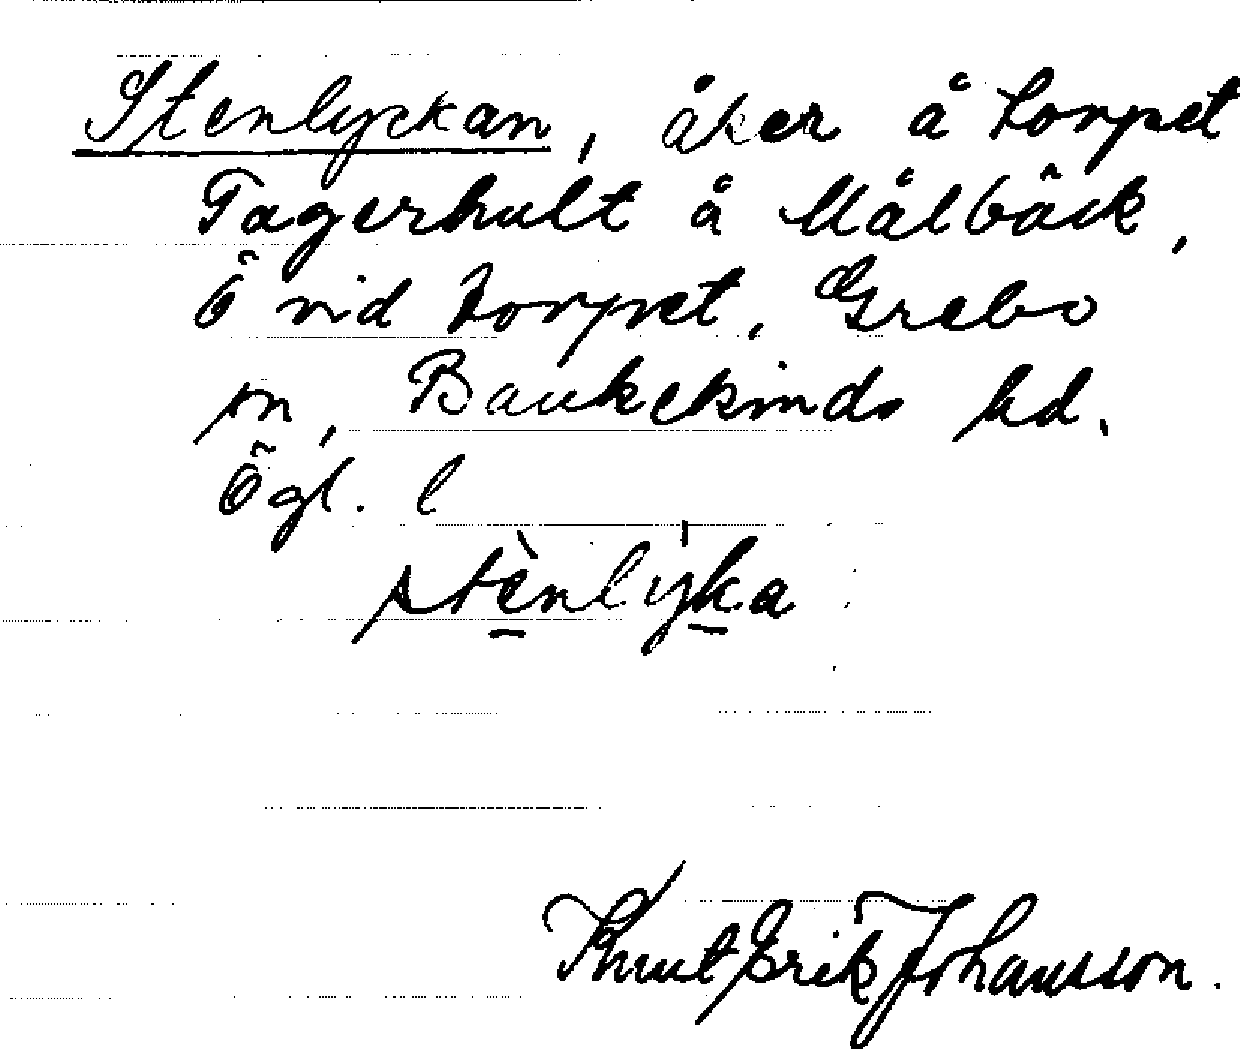 Stenlyckan, åker å torpet
Fagerhult å Målbäck,
Ö vid torpet, Grebo
sn, Bankekinds hd.
Ögl. l
stènlýka
Knut Erik Johansson.